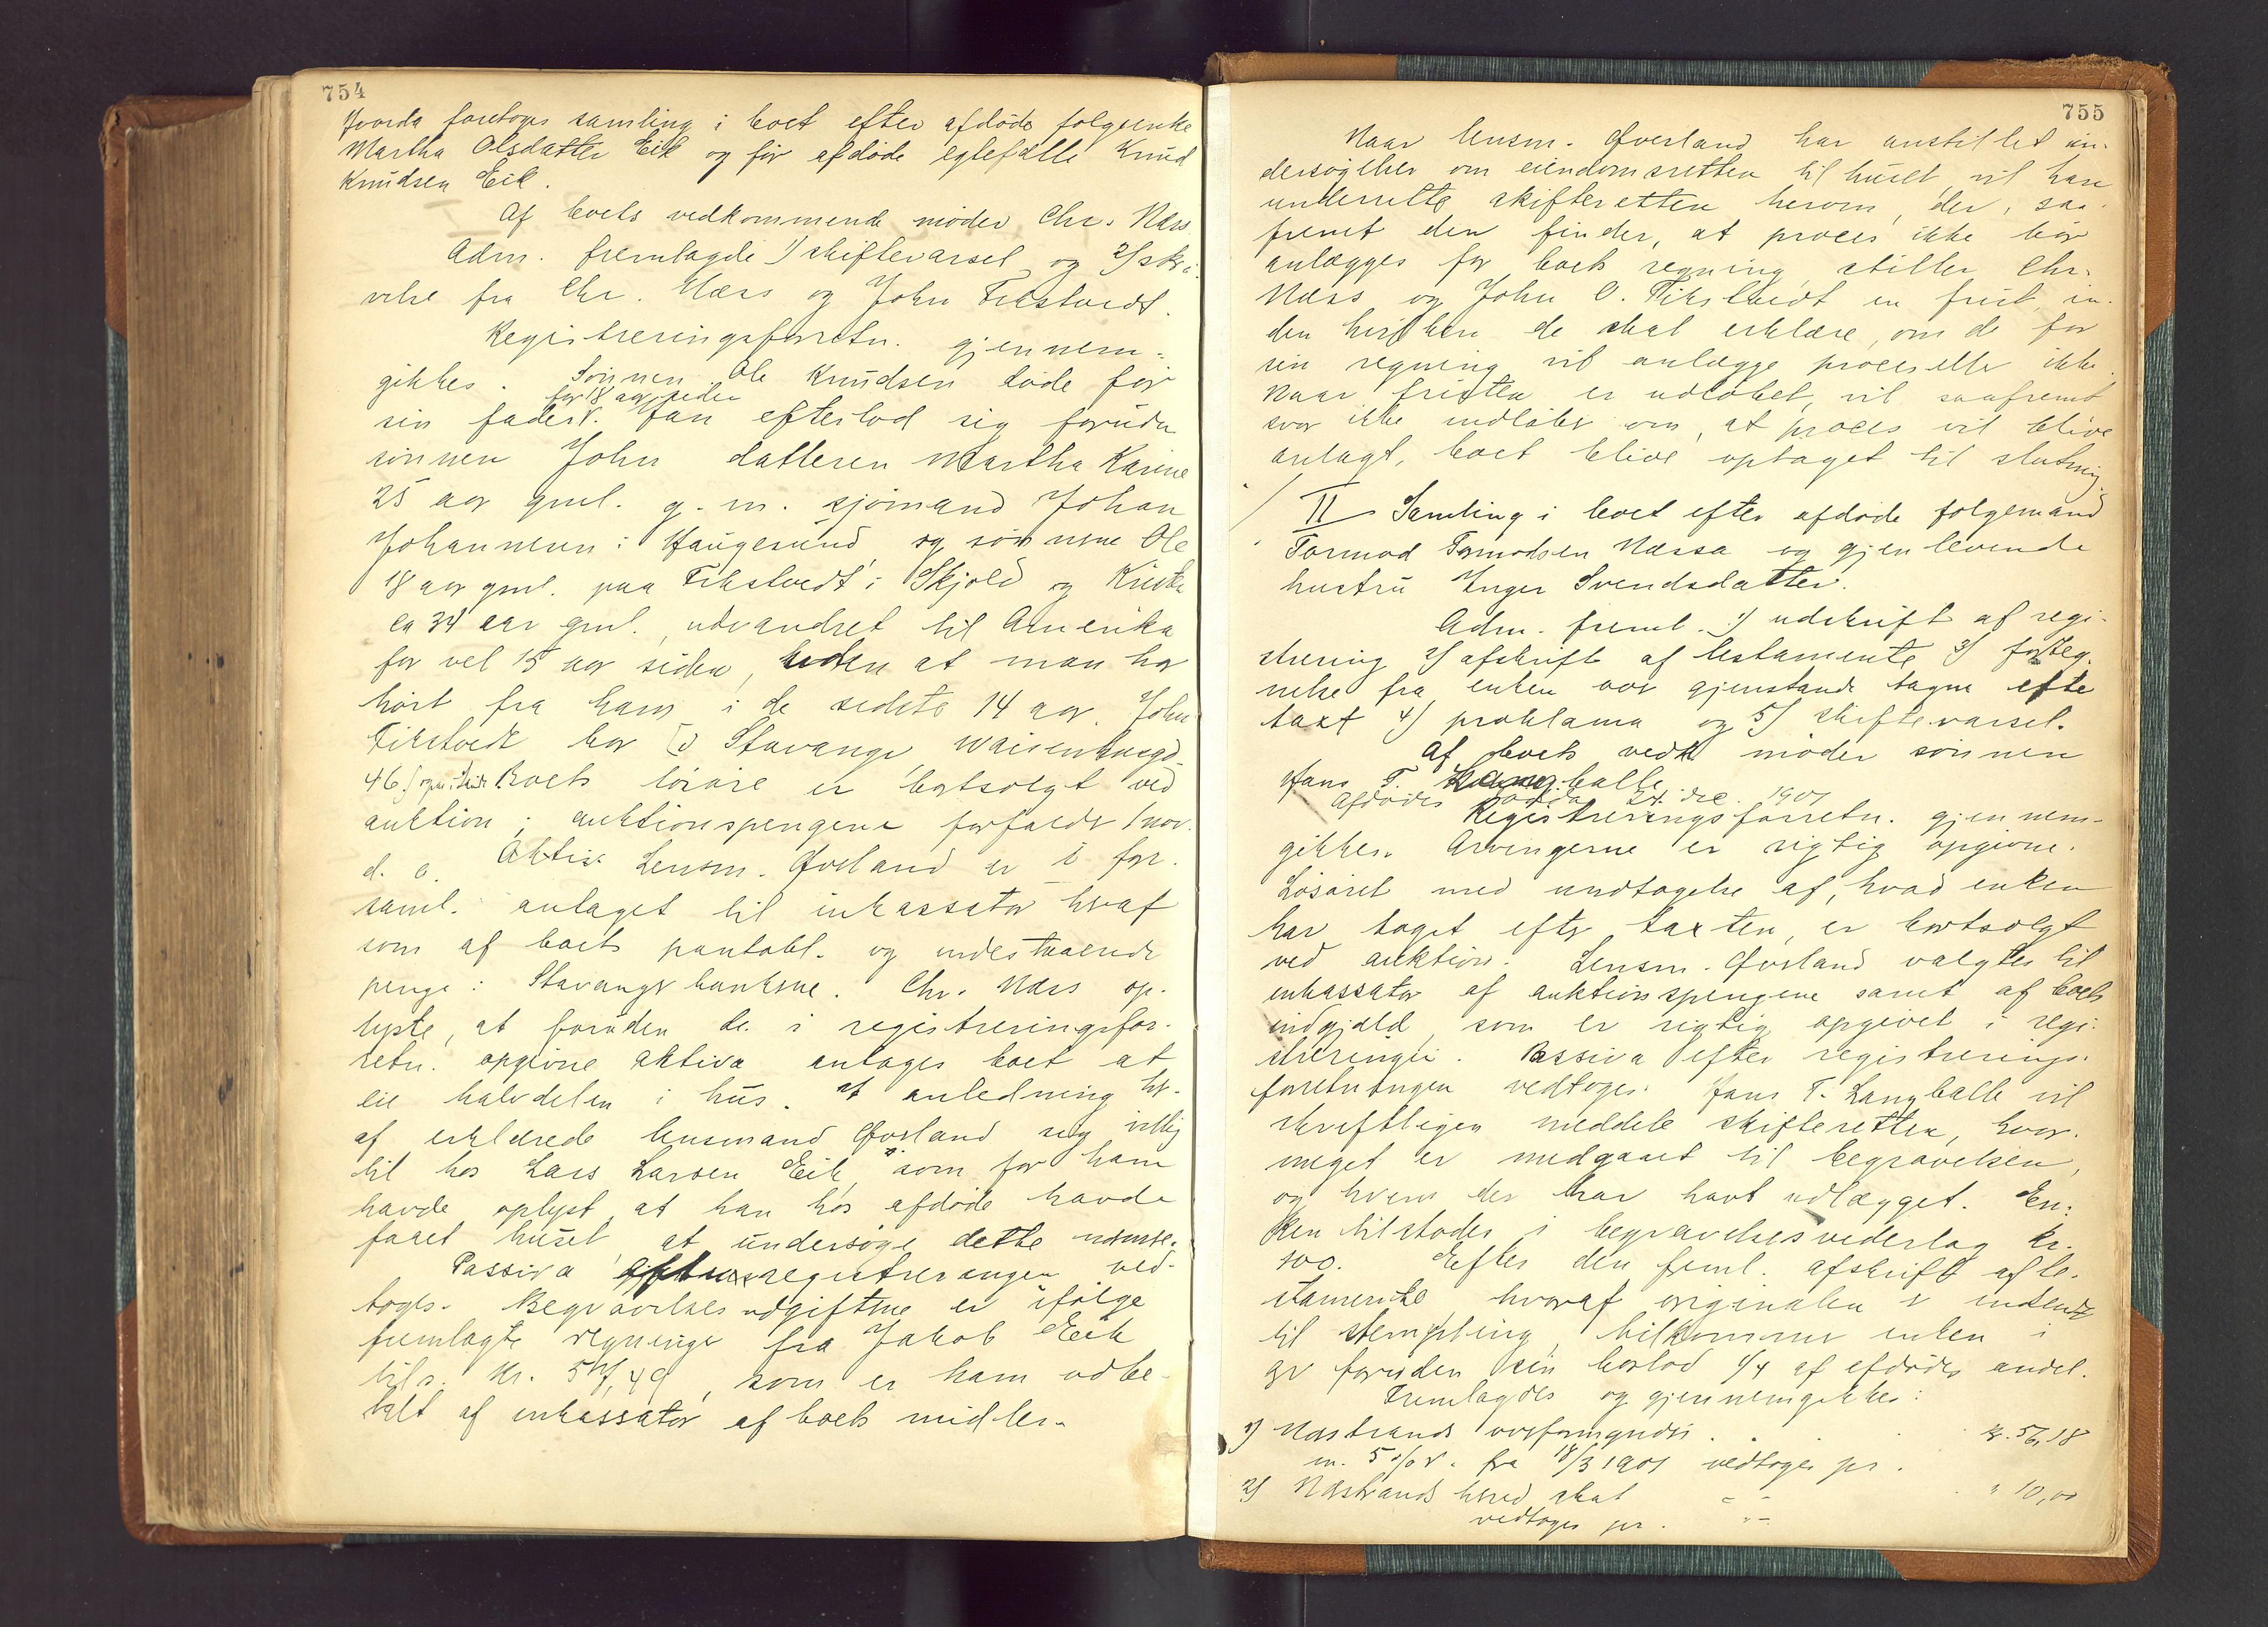 754
Hvorda foretoges samling i boet efter afdøde folgeenke
Martha Olsdatter Eik og før afdøde egtefælle Knud
Knudsen Eik.
Af boets vedkommende møder Chr. Næss
Adm. fremlagde 1) skiftevarsel og 2) skri-
velse fra Chr. Næss og John Tikstvedt.
Registreringsforretn. gjennem-
gikkes. Sønnen Ole Knudsen døde før
for 18 aar siden
sin fader. Han efterlod sig foruden
sønnen John datteren Martha Karine
25 aar gml. g. m. sjømand Johan
Johannesen i Haugesund og sønnene Ole
18 aar gml. paa Tikstvedt i Skjold og
ca 34 aar gml. udvandret til Amerika
for vel 15 aar siden, uden at man har
hørt fra ham i de sidste 14 aar. John
Tikstvedt bor i Stavanger, Waisenhusgd.
46. Boets løsøre er bortsolgt ved
auktion; auktionspengene forfalder 1 nov.
d. a. Aktiv. Lensm. Øverland er i for-
saml. antaget til inkassator heraf
som af boets pantobl. og indestaaende
penge i Stavanger bankerne. Chr. Næss op-
lyste, at foruden de i registreringsfor-
retn. opgivne aktiva antages boet at
eie halvdelen i hus. I anledning her-
af erklærede lensmand Øverland sig villig
til hos Lars Larsen Eik, som for ham
havde oplyst, at han hos afdøde havde
faaet huset, at undersøge dette nærmere.
Passiva efter registreringen ved-
toges. Begravelsesudgifterne er ifølge
fremlagte regninger fra Jakob Eik
tils. kr. 57,49, som er ham udbe-
talt af inkassator af boets midler.
755
Naar lensm. Øverland har anstillet un-
dersøgelser om eiendomsretten til huset vil han
underrette skifteretten herom, der, saa-
fremt den finder, at proces ikke bør
anlægges for boets regning, stiller Chr.
Næss og John O. Tikstvedt en frist, in-
den hvilken de skal erklære, om de for
sin regning vil anlægge proces eller ikke.
Naar fristen er udløbet, vil saafremt
svar ikke indløber om, at proces vil blive
anlagt, boet blive optaget til slutning.
II Samling i boet efter afdøde folgemand
Tormod Tormodsen Næssa og gjenlevende
hustru Inger Svendsdatter.
Adm. freml. 1) udskrift af regi-
strering 2) afskrift af testamente 3) forteg-
nelse fra enken over gjenstande tagne efter
taxt 4) proklama og 5) skiftevarsel.
Af boets vedk møder sønnen
Hans T. Langballe
Afdødes 24. dec. 1901
Registreringsforretn. gjennem-
gikkes. Arvingerne er rigtig opgivne.
Løsøret med undtagelse af, hvad enken
har taget efter taxten, er bortsolgt
ved auktion. Lensm. Øverland valgtes til
inkassator af auktionspengene samt af boets
indgjæld, som er rigtig opgivet i regi-
streringen. Passiva efter registrerings-
forretningen vedtoges. Hans T. Langballe vil
skriftligen meddele skifteretten, hvor-
meget er medgaaet til begravelsen,
og hvem der har havt udlægget. En-
ken tilstodes i begravelsesvederlag kr.
100. Efter den freml. afskrift af te-
stamente, hvoraf originalen er indsendt
til stempling, tilkommer enken i
arv foruden sin boslod 1/4 af afdødes andel.
Fremlagdes og gjennemgikkes:
1) Nærstrands overformynderi . . . kr. 56,18
m. 5 % r. fra 18/3 1901 vedtoges pr.
2) Nærstrands herred skat " 10,00
vedtoges pr.